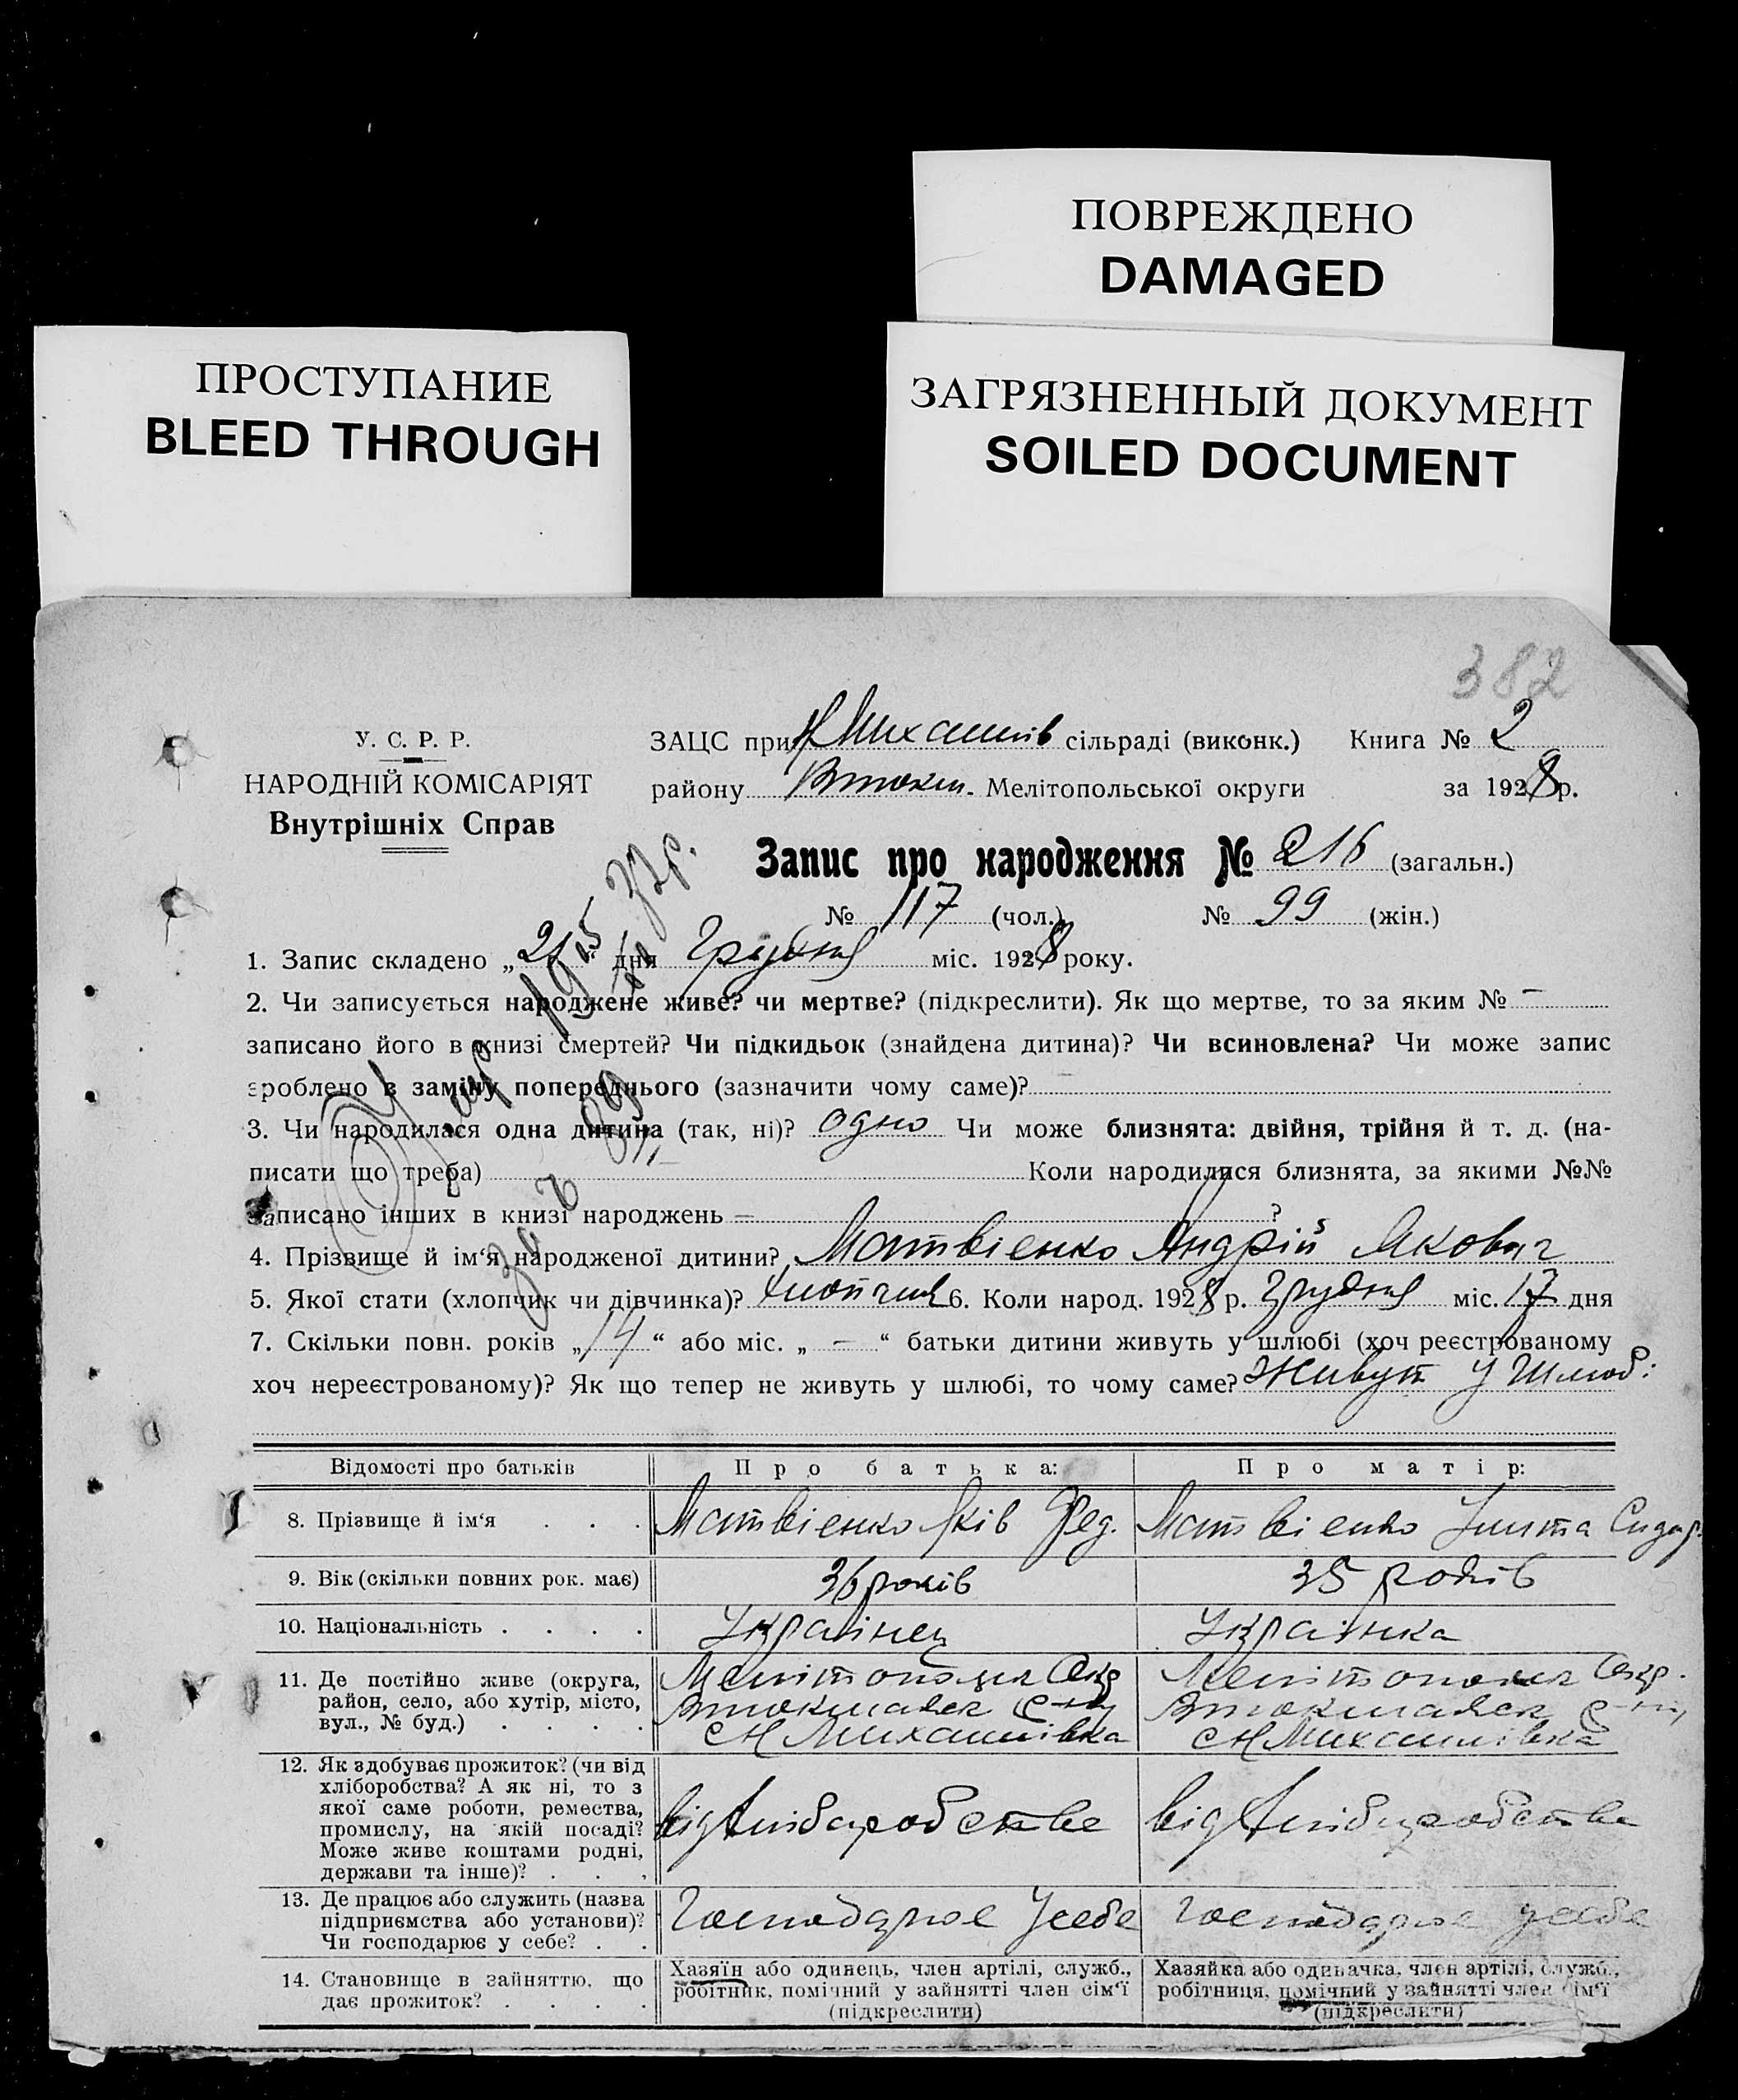 ПОВРЕЖДЕНО
DAMAGED
ПРОСТУПАНИЕ
BLEED THROUGH
ЗАГРЯЗНЕННЫЙ ДОКУМЕНТ
SOILED DOCUMENT
382
У. С. Р. Р.
НАРОДНІЙ КОМІСАРІЯТ
Внутрішніх Справ
ЗАЦС при Н Михайлів сільраді (виконк.) Книга № 2
району Втокм. Мелітопольської округи за 1928 р.
Запис про народження № 216 (загальн.)
№ 117 (чол.) № 99 (жін.)
1. Запис складено „21“ дня Грудня міс. 1928 року.
2. Чи записується народжене живе? чи мертве? (підкреслити). Як що мертве, то за яким № —
записано його в книзі смертей? Чи підкидьок (знайдена дитина)? Чи всиновлена? Чи може запис
зроблено в заміну попереднього (зазначити чому саме)?
3. Чи народилася одна дитина (так, ні)? одно Чи може близнята: двійня, трійня й т. д. (на-
писати що треба) Коли народилися близнята, за якими №№
записано інших в книзі народжень — ?
4. Прізвище й ім‘я народженої дитини? Матвієнко Андрій Якович
5. Якої стати (хлопчик чи дівчинка)? Хлопчик 6. Коли народ. 1928 р. Грудня міс. 17 дня
7. Скільки повн. років „14“ або міс. „—“ батьки дитини живуть у шлюбі (хоч реєстрованому
хоч нереєстрованому)? Як що тепер не живуть у шлюбі, то чому саме? Живут у Шлюбі
Відомості про батьків Про батька: Про матір:
8. Прізвище й ім‘я Матвієнко Яків Фед. Матвієнко Улита Сидор.
9. Вік (скільки повних рок. має) 36 років 35 років
10. Національність Українец Українка
11. Де постійно живе (округа,
район, село, або хутір, місто,
вул., № буд.)
Мелітопольск Окр
Втокмацек р-ну
с Н Михайлівка
Мелітопольск Окр.
Втокмацек р-ну
с Н Михайлівка
12. Як здобуває прожиток? (чи від
хліборобства? А як ні, то з
якої саме роботи, ремества,
промислу, на якій посаді?
Може живе коштами родні,
держави та інше)?
від Хліборобства
від Хліборобства
13. Де працює або служить (назва
підприємства або установи)?
Чи господарює у себе?
Господарює Усебе
Господарює усебе
14. Становище в зайняттю, що
дає прожиток?
Хазяїн або одинець, член артілі, служб.,
робітник, помічний у зайнятті член сім‘ї
(підкреслити)
Хазяйка або одиначка, член артілі, служб.,
робітниця, помічний у зайнятті член сім‘ї
(підкреслити)